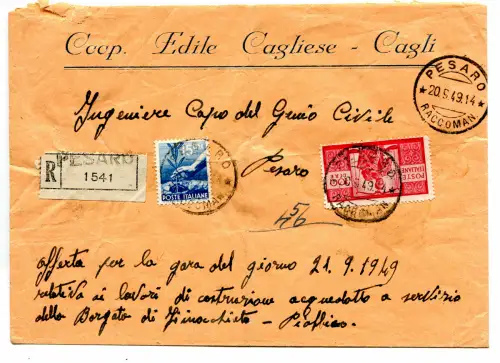 Coop. Edile Cagliese - Cagli
PESARO
20.9.49.14
RACCOMAN
Ingegniere Capo del Genio Civile
Pesaro
R
PESARO
1541
POSTE ITALIANE
RACCOMAN
POSTE ITALIANE
RACCOMAN
offerta per la gara del giorno 21.9.1949
relativa ai lavori di costruzione acquedotto a servizio
della Borgata di Finocchieto - Piobbico.